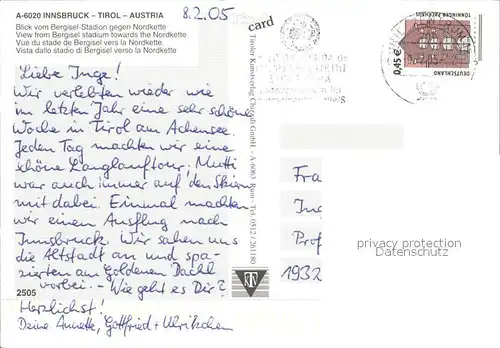 A-6020 INNSBRUCK – TIROL – AUSTRIA
Blick vom Bergisel-Stadion gegen Nordkette
View from Bergisel stadium towards the Nordkette
Vue du stade de Bergisel vers la Nordkette
Vista dallo stadio di Bergisel verso la Nordkette
8.2.05
Liebe Inge!
Wir verlebten wieder wie
im letzten Jahr eine sehr schöne
Woche in Tirol am Achensee.
Jeden Tag machten wir eine
schöne Langlauftour; Mutti
war auch immer auf den Skiern
mit dabei. Einmal machten
wir einen Ausflug nach
Innsbruck. Wir sahen uns
die Altstadt an und spa-
zierten am Goldenen Dachl
vorbei. – Wie geht es Dir?
Herzlichst!
Deine Annette, Gottfried + Ulrikchen
2505
card
Tiroler Kunstverlag Chizzali GmbH. · A-6063 Rum · Tel. 0512 / 261180
0,45 €
DEUTSCHLAND
TÖNNINGER PACKHAUS
Fra
Ing
Prof
1932
privacy protection
Datenschutz